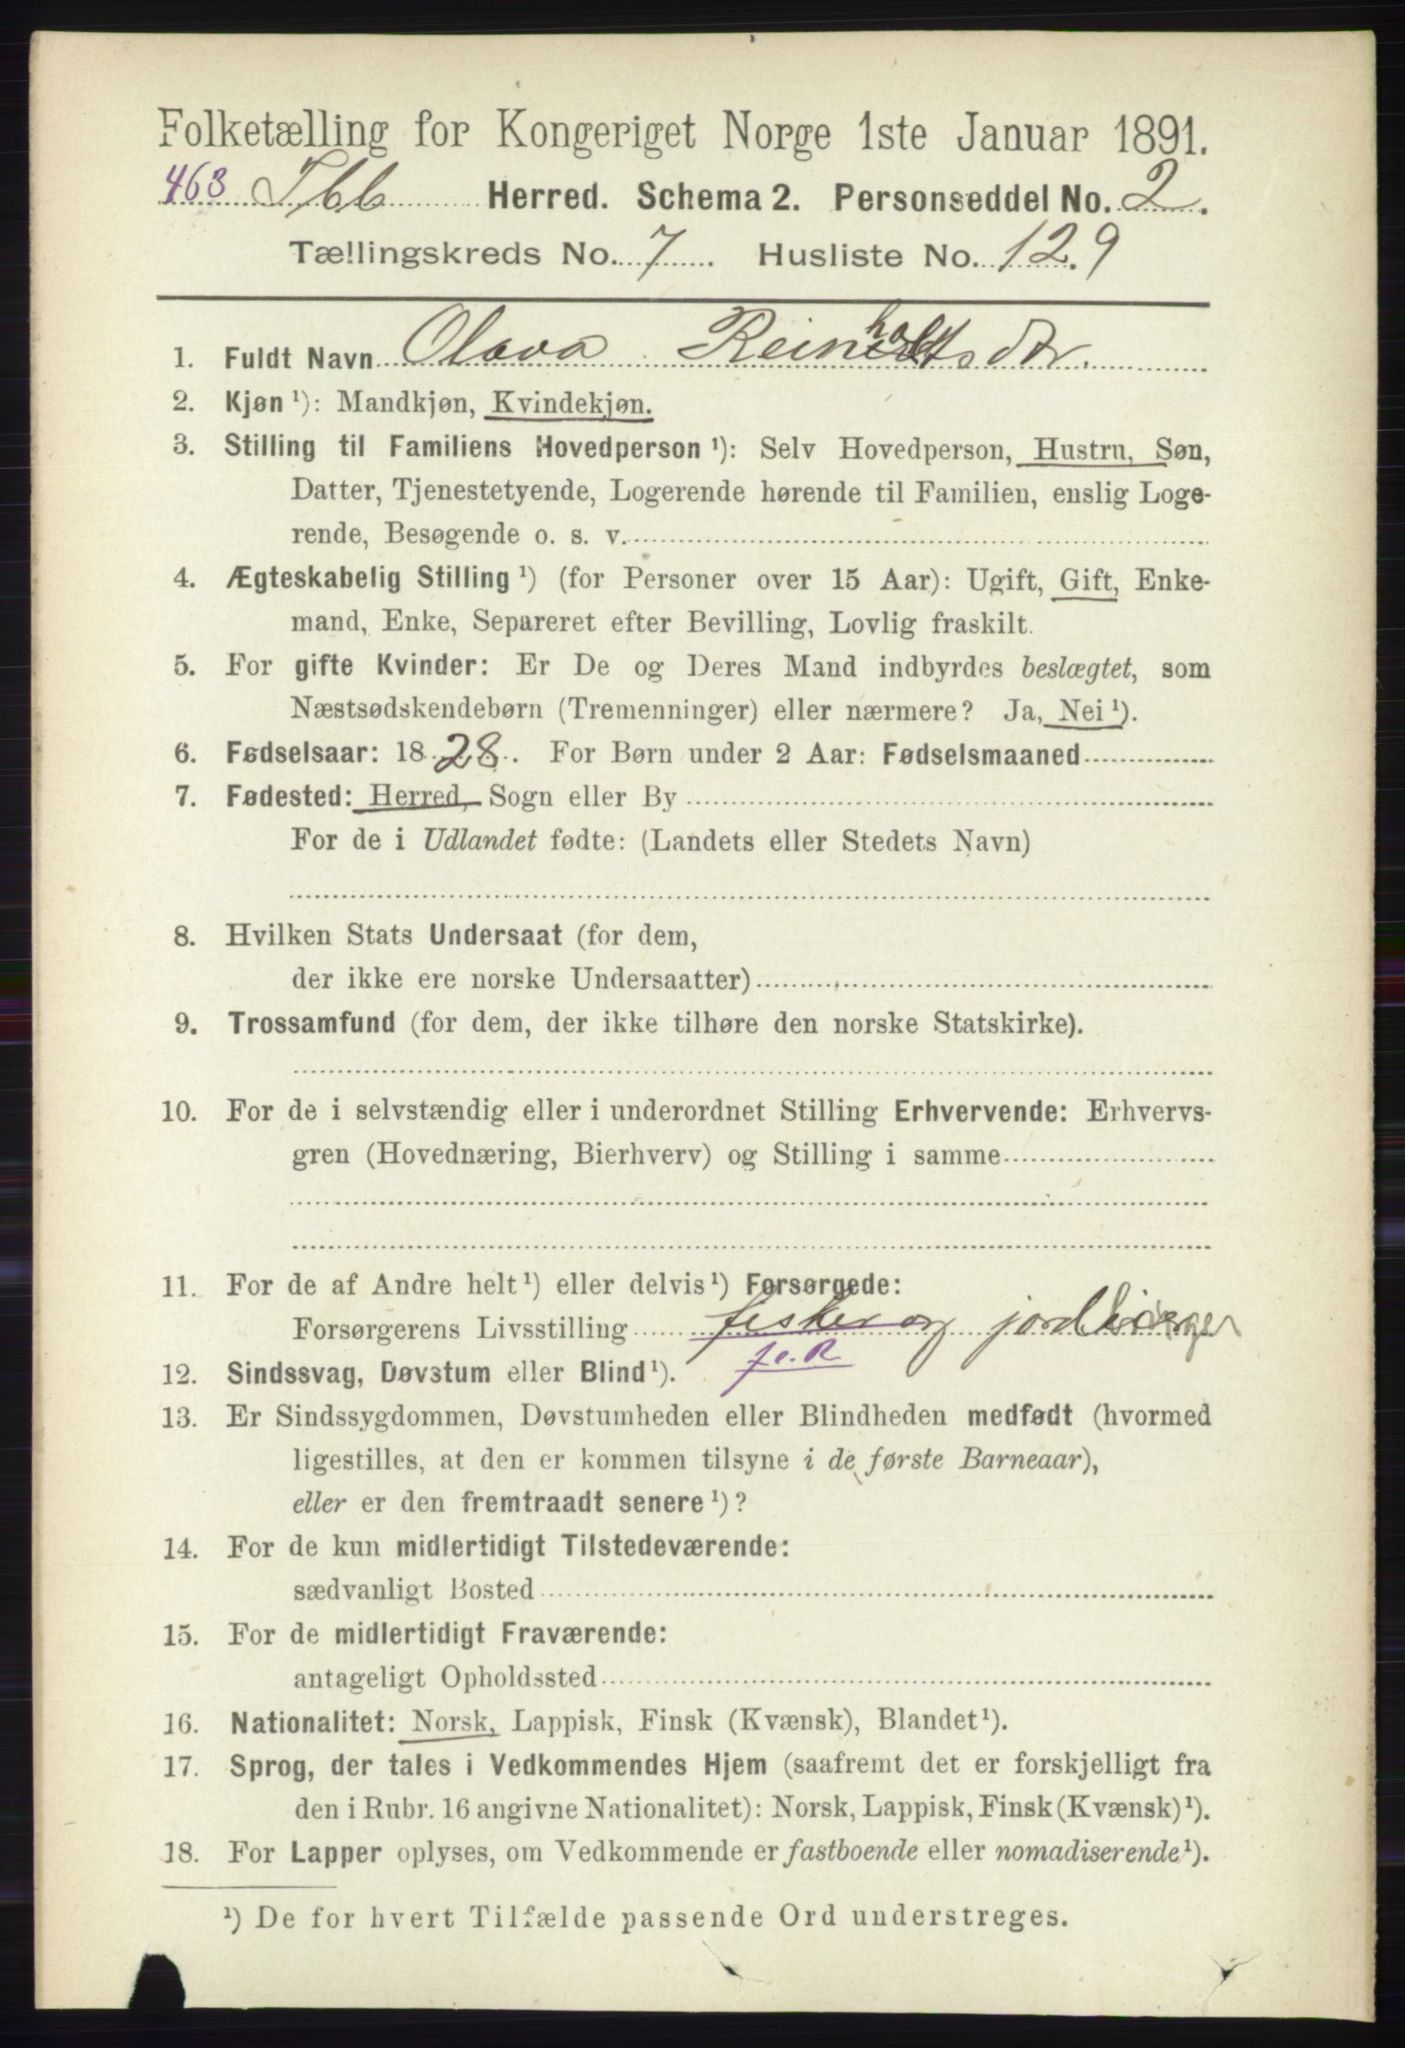 Folketælling for Kongeriget Norge 1ste Januar 1891.
463 Ibb Herred. Schema 2. Personseddel No. 2.
Tællingskreds No. 7 Husliste No. 129
1. Fuldt Navn Olava Reinholtsdtr.
2. Kjøn ¹): Mandkjøn, Kvindekjøn.
3. Stilling til Familiens Hovedperson ¹): Selv Hovedperson, Hustru, Søn,
Datter, Tjenestetyende, Logerende hørende til Familien, enslig Loge-
rende, Besøgende o. s. v.
4. Ægteskabelig Stilling ¹) (for Personer over 15 Aar): Ugift, Gift, Enke-
mand, Enke, Separeret efter Bevilling, Lovlig fraskilt.
5. For gifte Kvinder: Er De og Deres Mand indbyrdes beslægtet, som
Næstsødskendebørn (Tremenninger) eller nærmere? Ja, Nei ¹).
6. Fødselsaar: 1828. For Børn under 2 Aar: Fødselsmaaned
7. Fødested: Herred, Sogn eller By
For de i Udlandet fødte: (Landets eller Stedets Navn)
8. Hvilken Stats Undersaat (for dem,
der ikke ere norske Undersaatter)
9. Trossamfund (for dem, der ikke tilhøre den norske Statskirke).
10. For de i selvstændig eller i underordnet Stilling Erhvervende: Erhvervs-
gren (Hovednæring, Bierhverv) og Stilling i samme
11. For de af Andre helt ¹) eller delvis ¹) Forsørgede:
Forsørgerens Livsstilling fisker og
f.e.R
12. Sindssvag, Døvstum eller Blind ¹).
13. Er Sindssygdommen, Døvstumheden eller Blindheden medfødt (hvormed
ligestilles, at den er kommen tilsyne i de første Barneaar),
eller er den fremtraadt senere ¹)?
14. For de kun midlertidigt Tilstedeværende:
sædvanligt Bosted
15. For de midlertidigt Fraværende:
antageligt Opholdssted
16. Nationalitet: Norsk, Lappisk, Finsk (Kvænsk), Blandet ¹).
17. Sprog, der tales i Vedkommendes Hjem (saafremt det er forskjelligt fra
den i Rubr. 16 angivne Nationalitet): Norsk, Lappisk, Finsk (Kvænsk) ¹).
18. For Lapper oplyses, om Vedkommende er fastboende eller nomadiserende ¹).
¹) De for hvert Tilfælde passende Ord understreges.